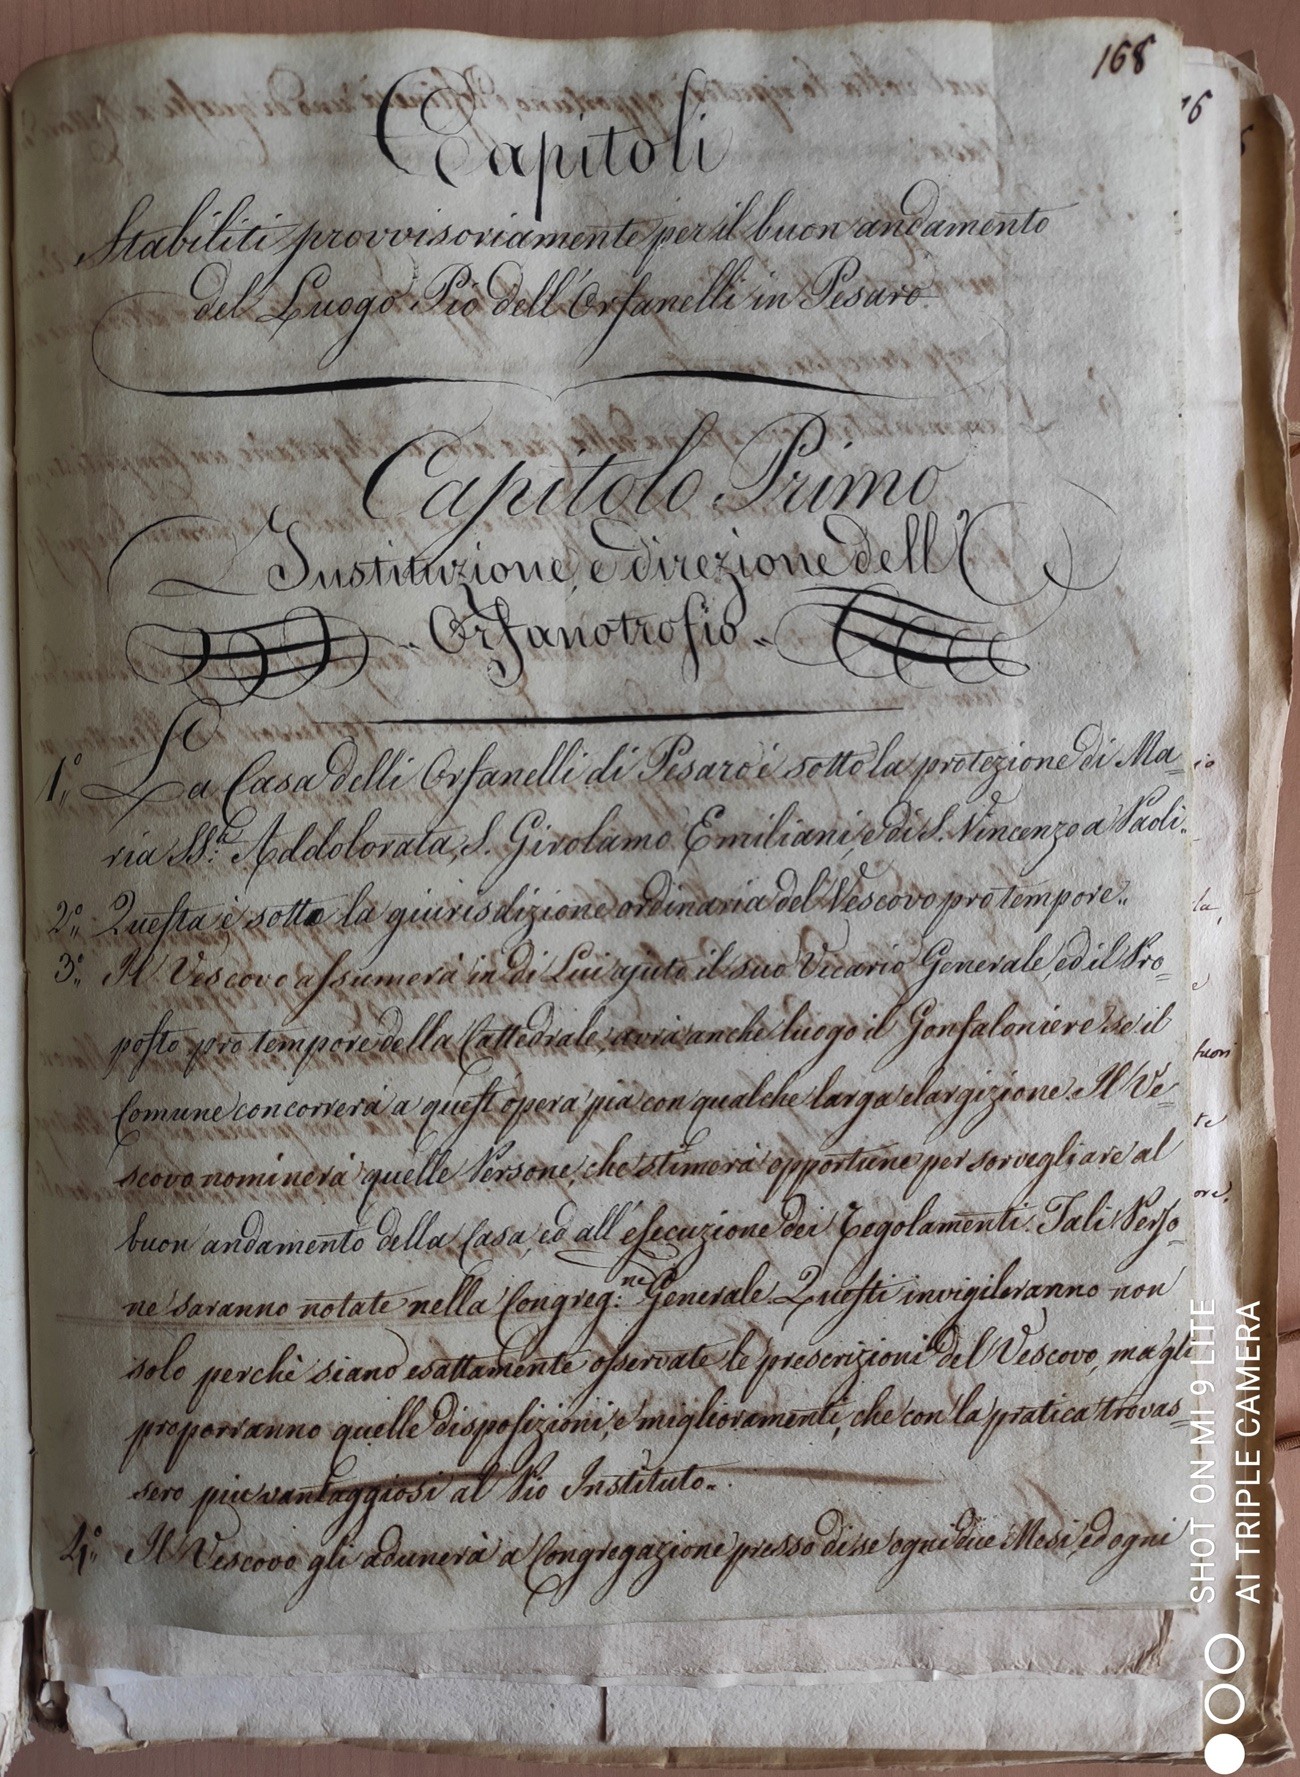 168
Capitoli
Stabiliti provvisoriamente per il buon andamento
del Luogo Pio dell'Orfanelli in Pesaro
Capitolo Primo
Instituzione, e direzione dell'
Orfanotrofio
1.° La Casa delli Orfanelli di Pesaro è sotto la protezione di Ma=
ria SS.ma Addolorata, S. Girolamo Emiliani, e di S. Vincenzo a Paoli..
2.° Questa è sotto la giurisdizione ordinaria del Vescovo pro tempore..
3.° Il Vescovo assumerà in di Lui ajuto il suo Vicario Generale, ed il Pro=
posto pro tempore della Cattedrale, avrà anche luogo il Gonfaloniere se il
Comune concorrerà a quest'opera pia con qualche larga elargizione. Il Ve=
scovo nominerà quelle Persone, che stimerà opportune per sorvegliare al
buon andamento della Casa, ed all'esecuzione dei Regolamenti. Tali Perso=
ne saranno notate nella Congreg:ne Generale. Questi invigileranno non
solo perchè siano esattamente osservate le prescrizioni del Vescovo, ma gli
proporranno quelle disposizioni, e miglioramenti, che con la pratica trovas=
sero più vantaggiosi al Pio Instituto..
4.° Il Vescovo gli adunerà a Congregazione presso di se ogni due Mesi, ed ogni
SHOT ON MI 9 LITE
AI TRIPLE CAMERA